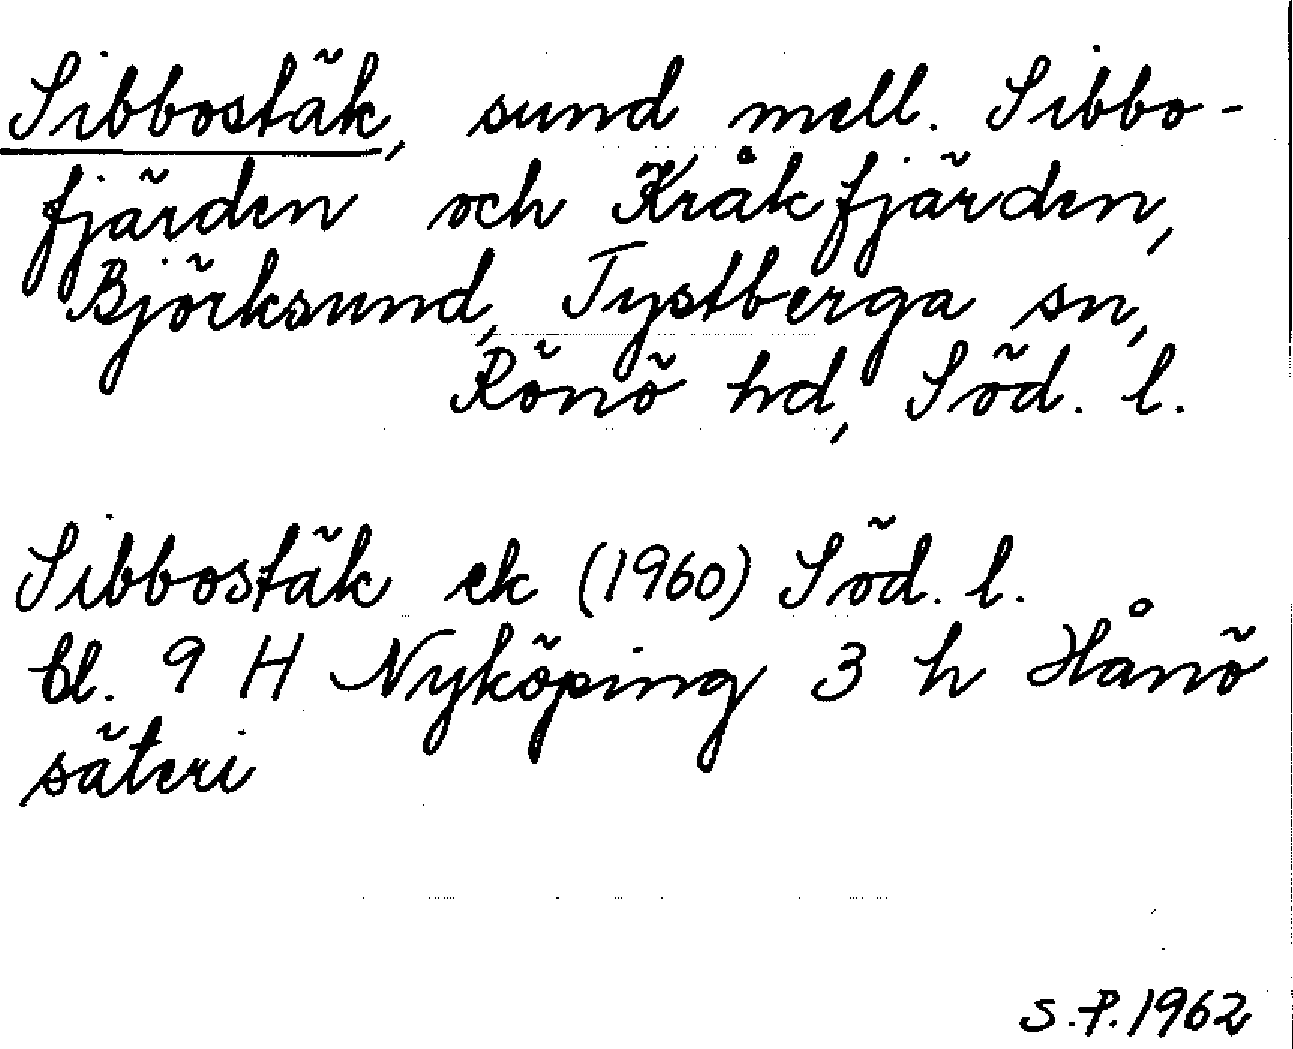 Sibbostäk, sund mell. Sibbo-
fjärden och Kråkfjärden,
Björksund, Tystberga sn,
Rönö hd, Söd. l.
Sibbostäk ek (1960) Söd. l.
bl. 9 H Nyköping 3 h Hånö
säteri
S.P. 1962